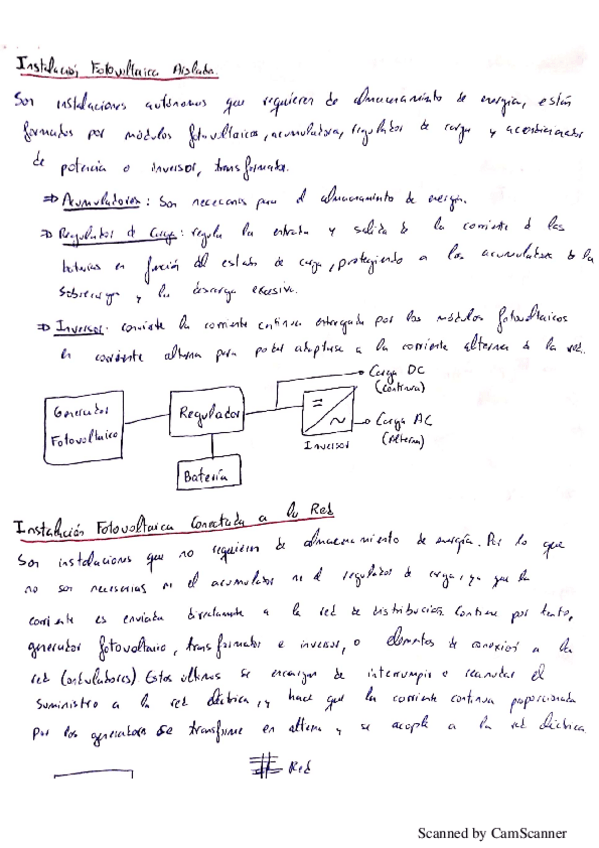 Instalación Fotovoltaica Aislada.
Son instalaciones autónomas que requieren de almacenamiento de energía, están
formados por módulos fotovoltaicos, acumuladores, regulador de carga y acondicionador
de potencia o inversor, transformador.
⇒ Acumuladores: Son necesarios para el almacenamiento de energía.
⇒ Regulador de Carga: regula la entrada y salida de la corriente de las
baterías en función del estado de carga, protegiendo a los acumuladores de la
sobrecarga y la descarga excesiva.
⇒ Inversor: convierte la corriente continua entregada por los módulos fotovoltaicos
en corriente alterna para poder adaptarse a la corriente alterna de la red.
Carga DC
(Continua)
Generador
Fotovoltaico
Regulador
= ~
Carga AC
(Alterna)
Inversor
Batería
Instalación Fotovoltaica Conectada a la Red
Son instalaciones que no requieren de almacenamiento de energía. Por lo que
no son necesarias ni el acumulador ni el regulador de carga, ya que la
corriente es enviada directamente a la red de distribución. Contiene por tanto,
generador fotovoltaico, transformador e inversor, o elementos de conexión a la
red (onduladores) Estos últimos se encargan de interrumpir o reanudar el
suministro a la red eléctrica, y hace que la corriente continua proporcionada
por los generadores se transforme en alterna y se acople a la red eléctrica.
Red
Scanned by CamScanner